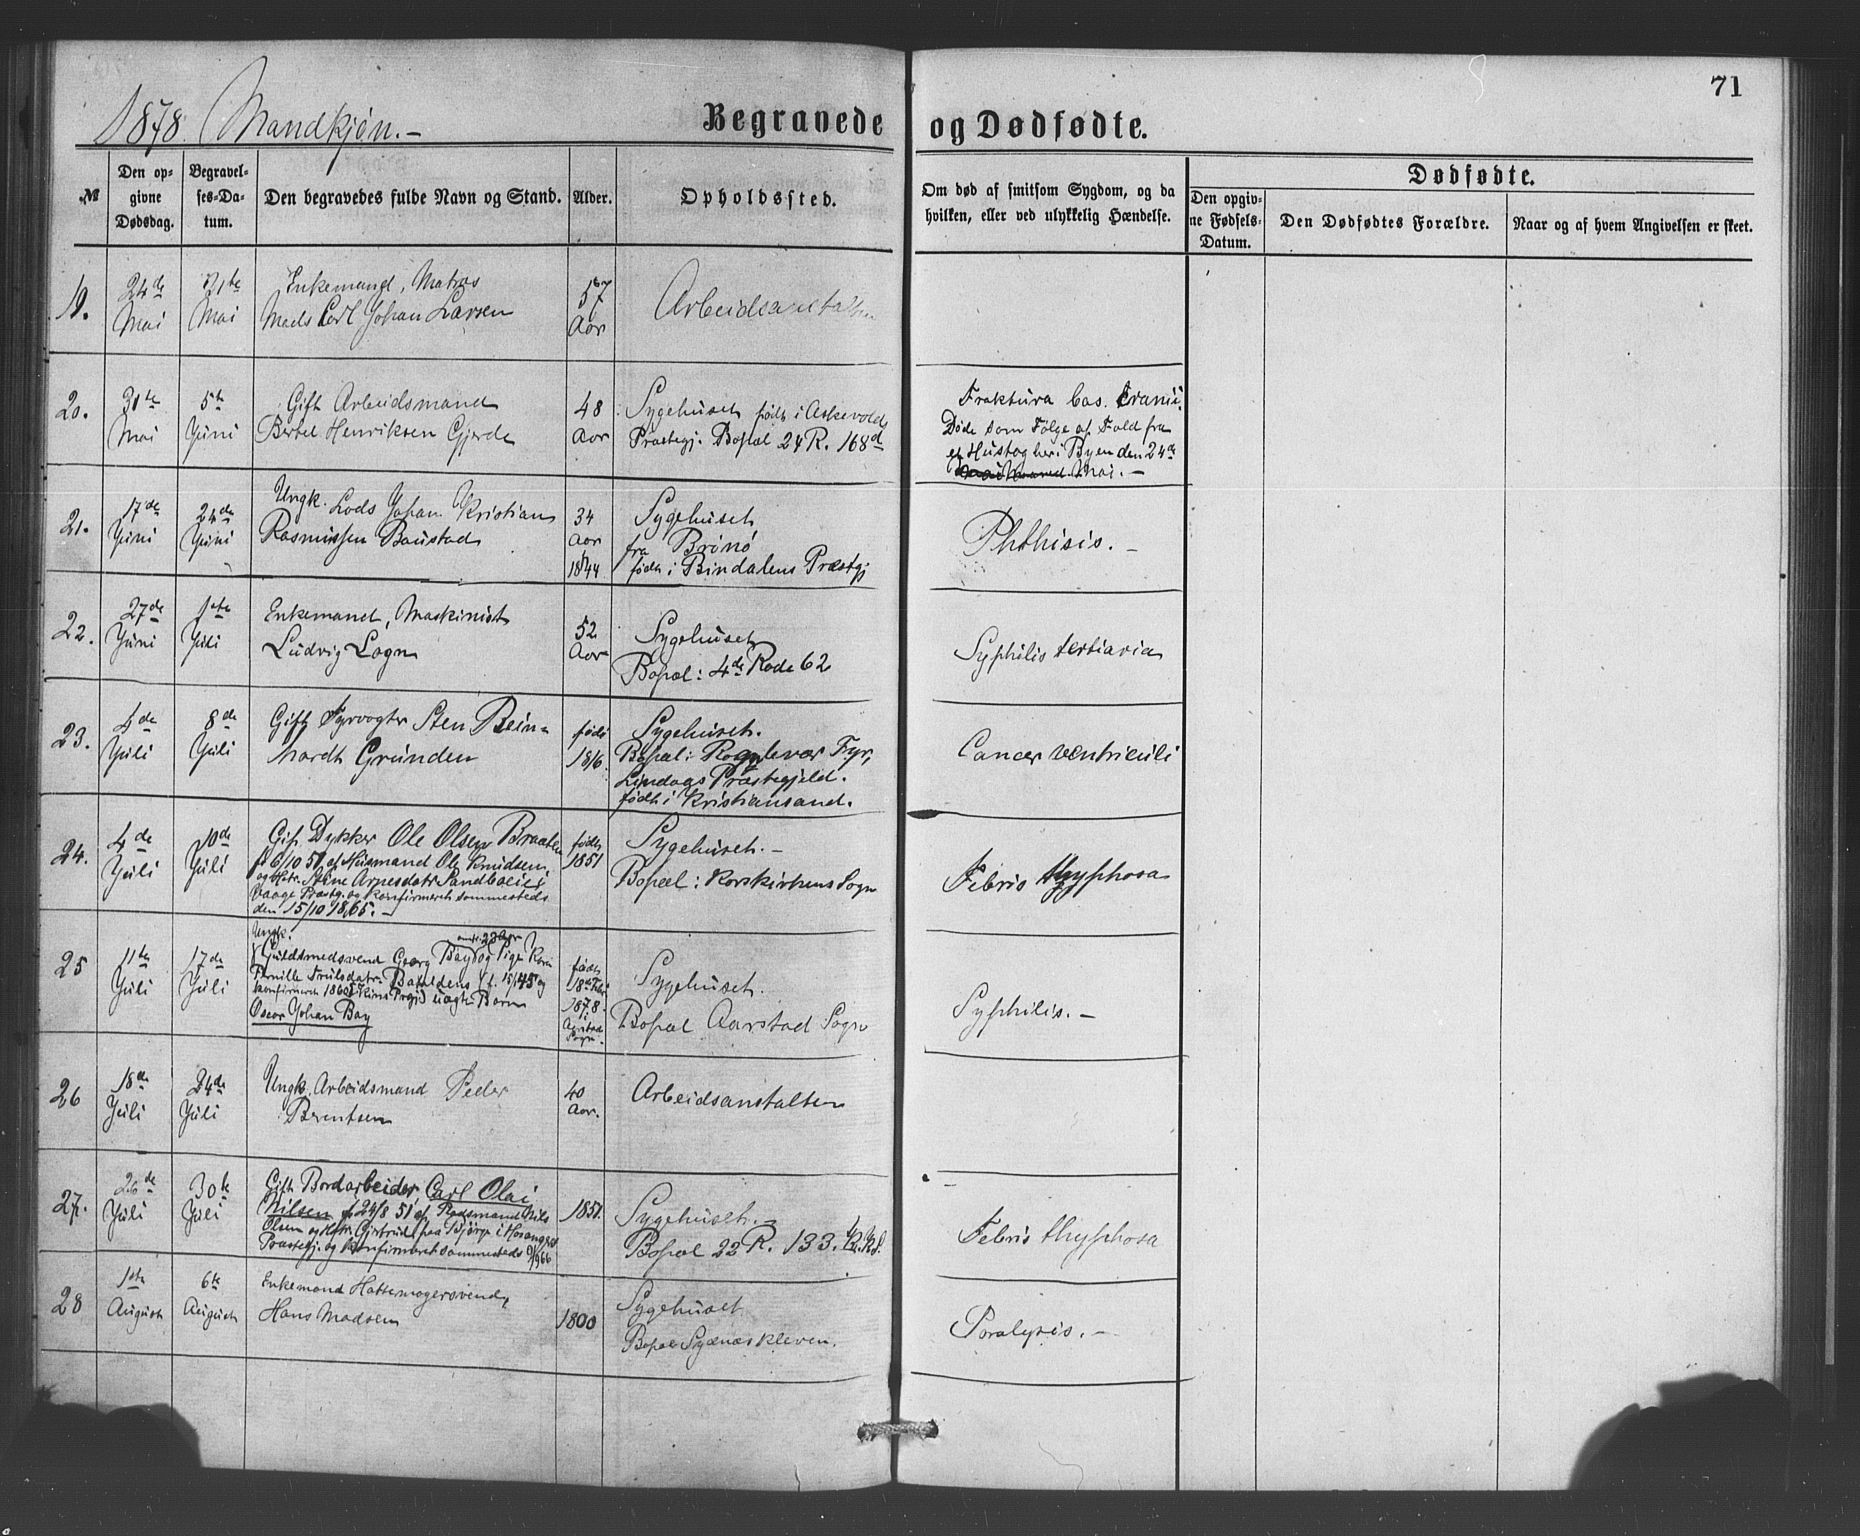 71
1878. Mandkjøn.-
Begravede og Dødfødte.
№
Den op-
givne
Dødsdag.
Begravel-
ses-Da-
tum.
Den begravedes fulde Navn og Stand.
Alder.
Opholdssted.
Om død af smitsom Sygdom, og da
hvilken, eller ved ulykkelig Hændelse.
Dødfødte.
Den opgiv-
ne Fødsels-
Datum.
Den Dødfødtes Forældre.
Naar og af hvem Angivelsen er skeet.
19.
24de
Mai
31te
Mai
Enkemand, Matros
Mads Carl Johan Larsen
57
Aar
Arbeidsanstalten
20.
30te
Mai
5te
Juni
Gift Arbeidsmand
Bertel Henriksen Gjerde
48
Aar
Sygehuset født i Askevold
Præstegj. Bopæl 24 R. 168d
Fraktura bas. Cranii.
Døde som Følge af Fald fra
et Hustag her i Byen den 24de
Mai. -
21.
17de
Juni
24de
Juni
Ungk. Lods Johan Kristian
Rasmussen Baustad
34
Aar
1844
Sygehuset,
fra Brønø
født i Bindalens Præstgj
Phthisis. -
22.
27de
Juni
1ste
Juli
Enkemand, Maskinist
Ludvig Logn
52
Aar
Sygehuset
Bopæl: 4de Rode 62
Syphilis tertiaria
23.
4de
Juli
8de
Juli
Gift Fyrvogter Sten Bein=
hardt Grunden
født
1816.
Sygehuset.
Bopæl: Rognevær Fyr,
Lindaas Præstegjeld.
født i Kristiansand.
Cancer ventriculi
24.
4de
Juli
10de
Juli
Gift Dykker Ole Olsen Braaten
f. 6/10 51, af Husmand Ole Knudsen
og Hstr. Stine Arnesdatr Sandboeie
Vaage Præstg. og konfirmeret sammesteds
den 15/10 1865. -
født
1851
Sygehuset. -
Bopæl: Korskirkens Sogn
Febris thyphosa
25
11te
Juli
17de
Juli
Ungk.
Guldsmedsvend Georg Bay og Pige Karen
Pernille Trulsdatr. Bataldens (f. 15/1 45 og
konfirmeret 1860 i Kins Prgjd uægte Barn
Oscar Johan Bay
født
18de Febr
1878.
i
Aarstad
Sogn.
Sygehuset.
Bopæl Aarstad Sogn
Syphilis. -
26
18de
Juli
24de
Juli
Ungk. Arbeidsmand Peder
Berntsen
40
Aar.
Arbeidsanstalten
27.
26de
Juli
30te
Juli
Gift Bordarbeider Carl Olai
Nilsen f. 24/8 51 af Nils
Olsen og Hstr. Gjertrud paa Bjørge i Hosanger
Præstegj. og konfirmeret sammesteds
1851.
Sygehuset. -
Bopæl 22 R. 133.
Febris thyphosa
28
1ste
August
6te
August
Enkemand Hattemagersvend,
Hans Madsen
1800
Sygehuset
Bopæl Sydnæskleven.
Paralysis. -